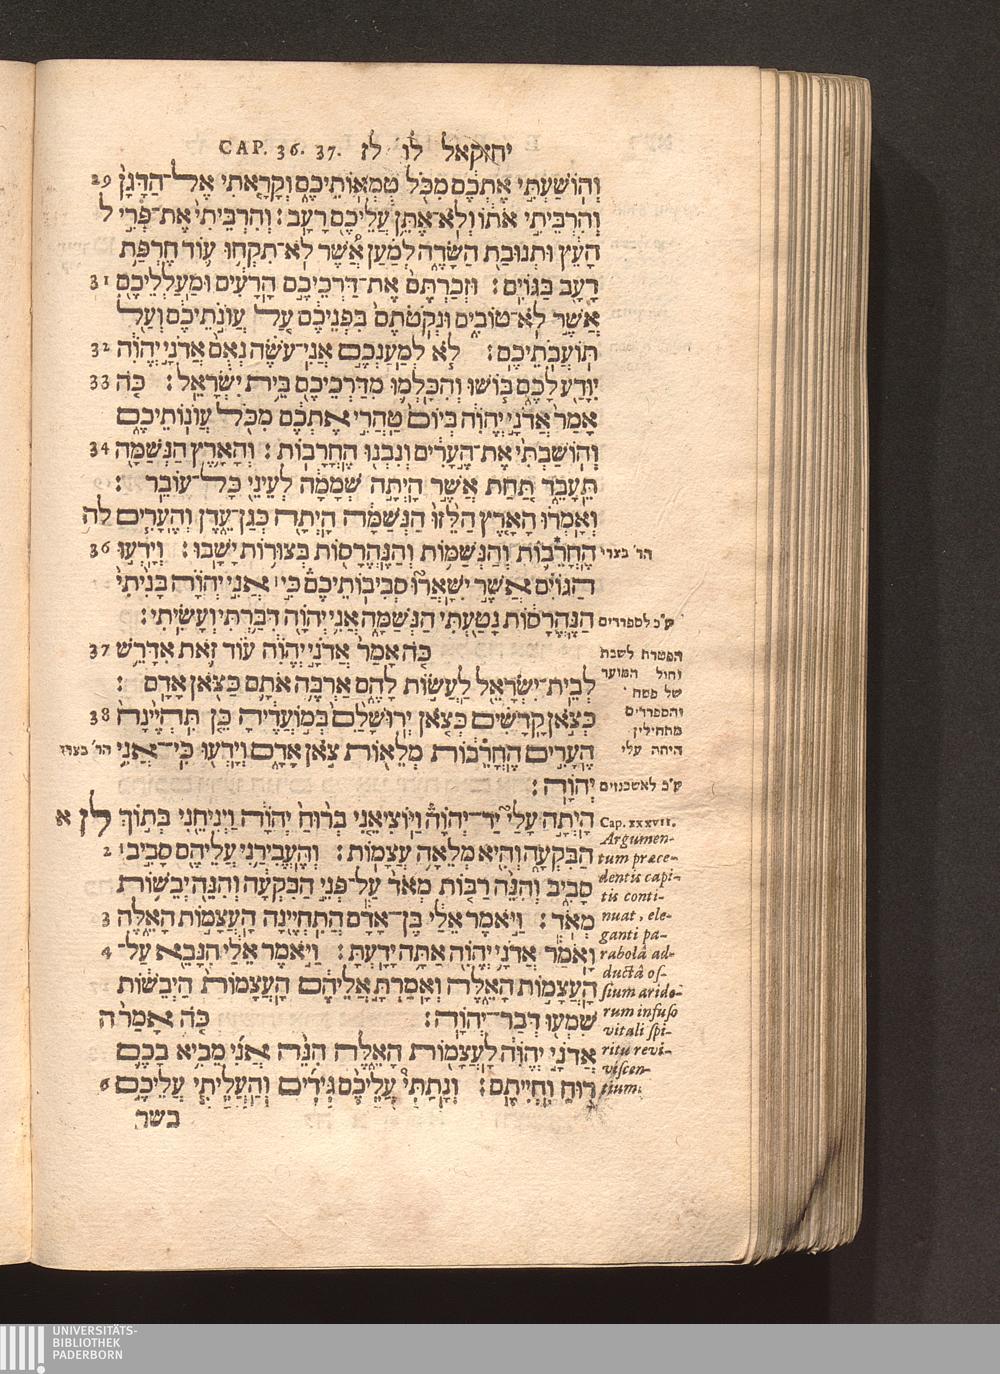 יחזקאל לו לז CAP. 36. 37.
וְהוֹשַׁעְתִּי אֶתְכֶם מִכֹּל טֻמְאוֹתֵיכֶם וְקָרָאתִי אֶל־הַדָּגָן 29
וְהִרְבֵּיתִי אֹתוֹ וְלֹא־אֶתֵּן עֲלֵיכֶם רָעָב: וְהִרְבֵּיתִי אֶת־פְּרִי ל
הָעֵץ וּתְנוּבַת הַשָּׂדֶה לְמַעַן אֲשֶׁר לֹא־תִקְחוּ עוֹד חֶרְפַּת
רָעָב בַּגּוֹיִם: וּזְכַרְתֶּם אֶת־דַּרְכֵיכֶם הָרָעִים וּמַעַלְלֵיכֶם 31
אֲשֶׁר לֹא־טוֹבִים וּנְקֹטֹתֶם בִּפְנֵיכֶם עַל עֲוֺנֹתֵיכֶם וְעַל
תּוֹעֲבֹתֵיכֶם: לֹא לְמַעַנְכֶם אֲנִי־עֹשֶׂה נְאֻם אֲדֹנָי יֱהֹוִה 32
יִוָּדַע לָכֶם בּוֹשׁוּ וְהִכָּלְמוּ מִדַּרְכֵיכֶם בֵּית יִשְׂרָאֵל: כֹּה 33
אָמַר אֲדֹנָי יֱהֹוִה בְּיוֹם טַהֲרִי אֶתְכֶם מִכֹּל עֲוֺנוֹתֵיכֶם
וְהוֹשַׁבְתִּי אֶת־הֶעָרִים וְנִבְנוּ הֶחֳרָבוֹת: וְהָאָרֶץ הַנְּשַׁמָּה 34
תֵּעָבֵד תַּחַת אֲשֶׁר הָיְתָה שְׁמָמָה לְעֵינֵי כָּל־עוֹבֵר:
וְאָמְרוּ הָאָרֶץ הַלֵּזוּ הַנְּשַׁמָּה הָיְתָה כְּגַן־עֵדֶן וְהֶעָרִים לה
הֶחֳרֵבוֹת וְהַנְשַׁמּוֹת וְהַנֶּהֱרָסוֹת בְּצוּרוֹת יָשָׁבוּ: וְיָדְעוּ 36
הד' בצרי
הַגּוֹיִם אֲשֶׁר יִשָּׁאֲרוּ סְבִיבוֹתֵיכֶם כִּי אֲנִי יְהֹוָה בָּנִיתִי
הַנֶּהֱרָסוֹת נָטַעְתִּי הַנְּשַׁמָּה אֲנִי יְהֹוָה דִּבַּרְתִּי וְעָשִׂיתִי:
ע"כ לספרדים
כֹּה אָמַר אֲדֹנָי יֱהֹוִה עוֹד זֹאת אִדָּרֵשׁ 37
לְבֵית־יִשְׂרָאֵל לַעֲשׂוֹת לָהֶם אַרְבֶּה אֹתָם כַּצֹּאן אָדָם:
כְּצֹאן קָדָשִׁים כְּצֹאן יְרוּשָׁלִַם בְּמוֹעֲדֶיהָ כֵּן תִּהְיֶינָה 38
הֶעָרִים הֶחֳרֵבוֹת מְלֵאוֹת צֹאן אָדָם וְיָדְעוּ כִּי־אֲנִי
הד' בצרי
יְהֹוָה:
הפטרת לשבת
וחול המועד
של פסח
והספרדים
מתחילין
היתה עלי
ע"כ לאשכנזים
הָיְתָה עָלַי יַד־יְהֹוָה וַיּוֹצִיאֵנִי בְרוּחַ יְהֹוָה וַיְנִיחֵנִי בְּתוֹךְ לז א
הַבִּקְעָה וְהִיא מְלֵאָה עֲצָמוֹת: וְהֶעֱבִירַנִי עֲלֵיהֶם סָבִיב 2
סָבִיב וְהִנֵּה רַבּוֹת מְאֹד עַל־פְּנֵי הַבִּקְעָה וְהִנֵּה יְבֵשׁוֹת
מְאֹד: וַיֹּאמֶר אֵלַי בֶּן־אָדָם הֲתִחְיֶינָה הָעֲצָמוֹת הָאֵלֶּה 3
וָאֹמַר אֲדֹנָי יֱהֹוִה אַתָּה יָדָעְתָּ: וַיֹּאמֶר אֵלַי הִנָּבֵא עַל־ 4
הָעֲצָמוֹת הָאֵלֶּה וְאָמַרְתָּ אֲלֵיהֶם הָעֲצָמוֹת הַיְבֵשׁוֹת
שִׁמְעוּ דְּבַר־יְהֹוָה: כֹּה אָמַר ה
אֲדֹנָי יֱהֹוִה לָעֲצָמוֹת הָאֵלֶּה הִנֵּה אֲנִי מֵבִיא בָכֶם
רוּחַ וִחְיִיתֶם: וְנָתַתִּי עֲלֵיכֶם גִּידִים וְהַעֲלֵיתִי עֲלֵיכֶם 6
בשר
Cap. xxxvii.
Argumen-
tum præce-
dentis capi-
tis conti-
nuat, ele-
ganti pa-
rabolâ ad-
ductâ os-
sium arido-
rum infuso
vitali spi-
ritu revi-
viscen-
tium.
UNIVERSITÄTS-
BIBLIOTHEK
PADERBORN